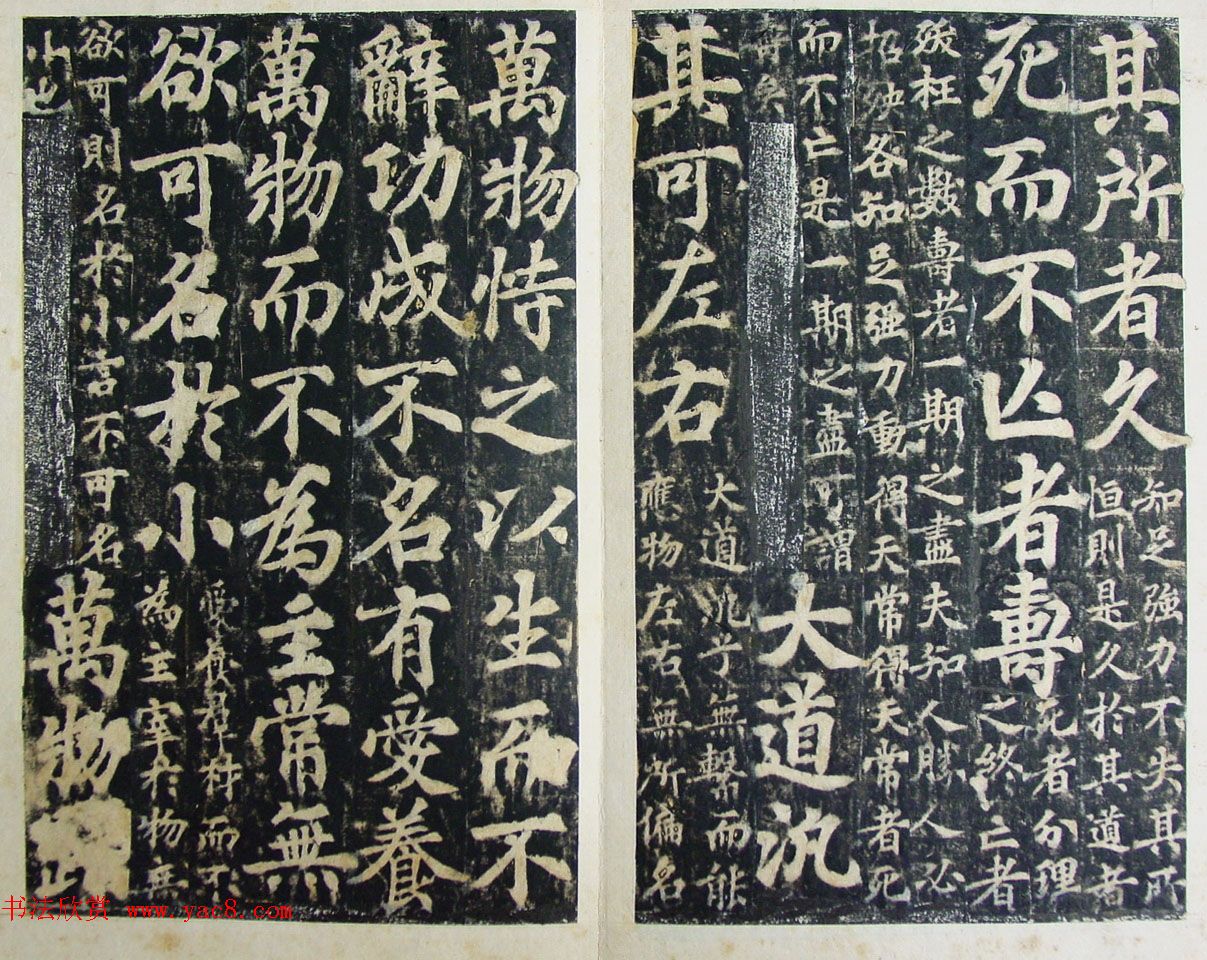 其所者久
知足強力不失其所
恒則是久於其道者
死而不亡者壽
死者分理
之終亡者
殀枉之數壽者一期之盡夫知人勝人必
招殃各知足強力動得天常得天常者死
而不亡是一期之盡可謂
壽矣
大道汎
其可左右
大道汎乎無繫而能
應物左右無所偏名
萬物恃之以生而不
辭功成不名有愛養
萬物而不為主常無
欲可名於小
愛養羣材而不
為主宰於物無
欲可則名於小言不可名
小也
萬物
书法欣赏 www.yac8.com